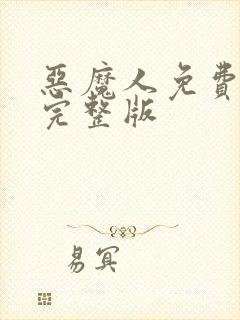 惡魔人免費
完整版
易冥